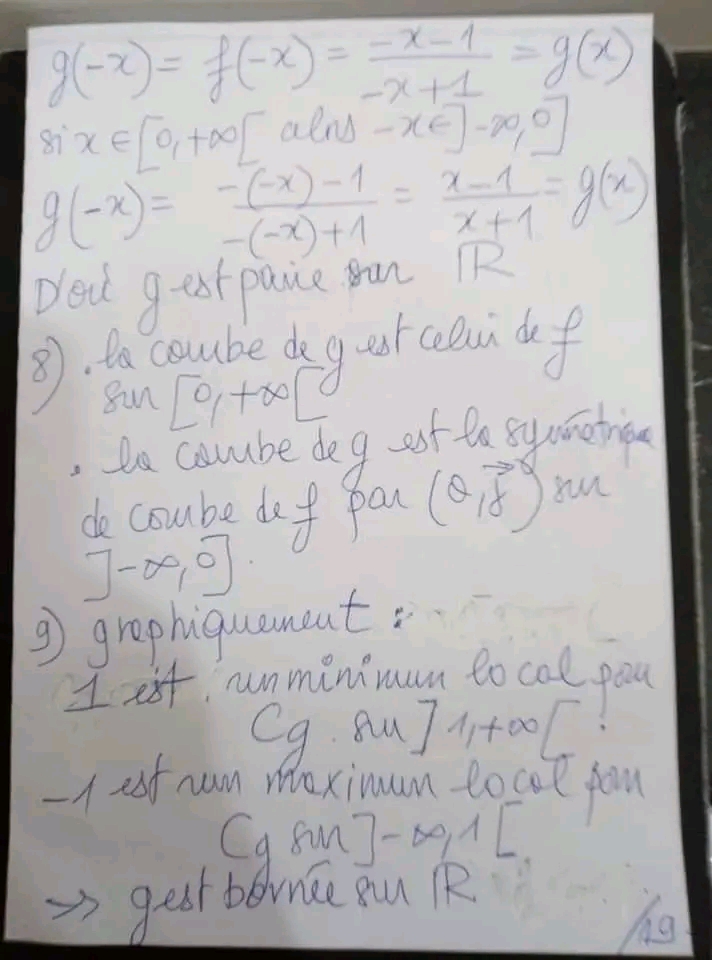 g(-x) = f(-x) = (-x-1)/(-x+1) = g(x)
si x ∈ [0,+∞[ alors -x ∈ ]-∞,0]
g(-x) = (-(-x)-1)/(-(-x)+1) = (x-1)/(x+1) = g(x)
D'où g est paire sur ℝ
8) . la courbe de g est celui de f
sur [0,+∞[
. la courbe de g est la symétrique
de courbe de f par (O,j⃗) sur
]-∞,0].
9) graphiquement :
1 est un minimun local pour
Cg sur ]1,+∞[ .
-1 est un maximun local pour
Cg sur ]-∞,1[
→ g est bornée sur ℝ
/19